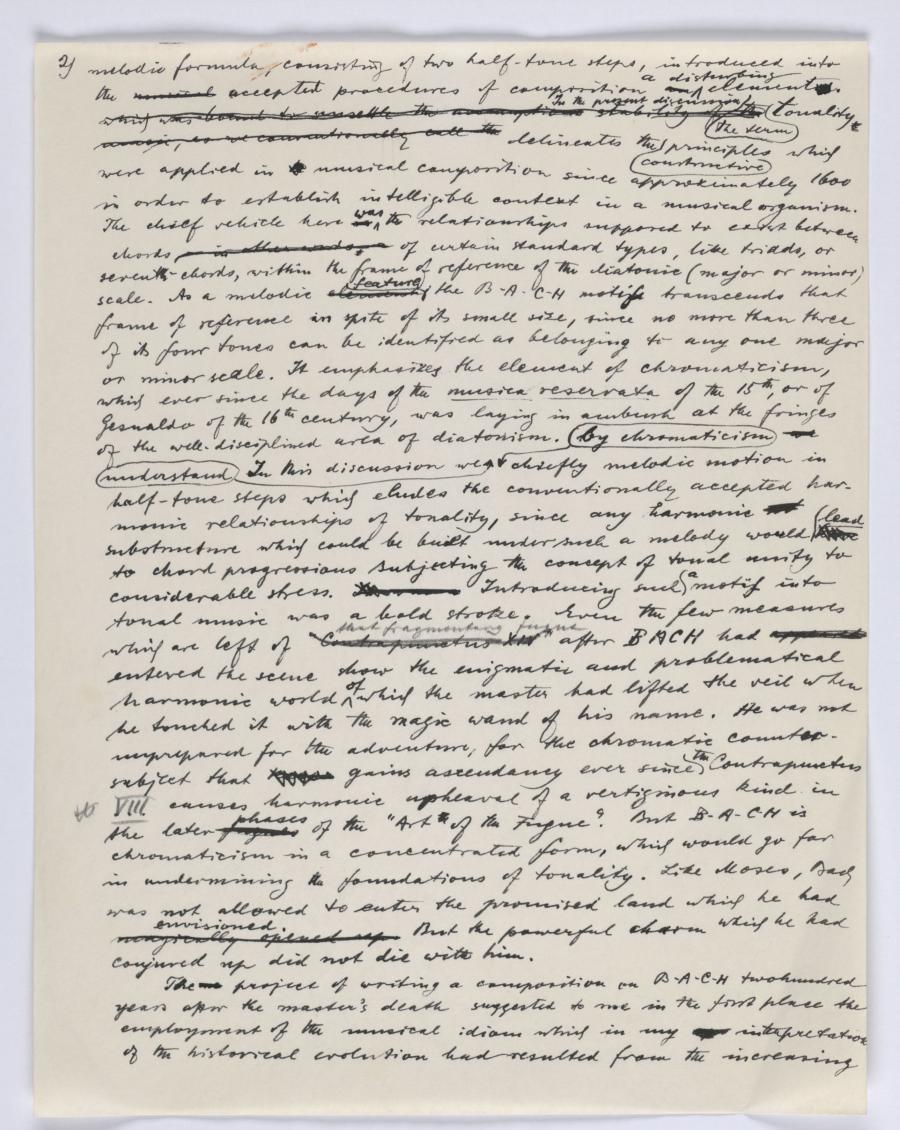 2) melodic formula, consisting of two half-tone steps, introduced into
the musical accepted procedures of composition a disturbing element
which was bound to unsettle the assumptions stability of the In the present discussion, the term tonality
music, as we conventionally call the delineates the constructive principles which
were applied in musical composition since approximately 1600
in order to establish intelligible context in a musical organism.
The chief vehicle here was the relationships supposed to exist between
chords, in other words, of certain standard types, like triads, or
seventh-chords, within the frame of reference of the diatonic (major or minor)
scale. As a melodic element feature, the B-A-C-H motif transcends that
frame of reference in spite of its small size, since no more than three
of its four tones can be identified as belonging to any one major
or minor scale. It emphasizes the element of chromaticism,
which ever since the days of the musica reservata of the 15th, or of
Gesualdo of the 16th century, was laying in ambush at the fringes
of the well-disciplined area of diatonism. by chromaticism we
understand In this discussion chiefly melodic motion in
half-tone steps which eludes the conventionally accepted har-
monic relationships of tonality, since any harmonic
substructure which could be built under such a melody would lead
to chord progressions subjecting the concept of tonal unity to
considerable stress. Introducing such a motif into
tonal music was a bold stroke. Even the few measures
which are left of Contrapunctus XIV that fragmentary fugue after BACH had
entered the scene show the enigmatic and problematical
harmonic world of which the master had lifted the veil when
he touched it with the magic wand of his name. He was not
unprepared for the adventure, for the chromatic counter-
subject that gains ascendancy ever since the Contrapunctus
VIII causes harmonic upheaval of a vertiginous kind in
the later fugues phases of the "Art of the Fugue". But B-A-C-H is
chromaticism in a concentrated form, which would go far
in undermining the foundations of tonality. Like Moses, Bach
was not allowed to enter the promised land which he had
magically opened up envisioned. But the powerful charm which he had
conjured up did not die with him.
The project of writing a composition on B-A-C-H twohundred
years after the master's death suggested to me in the first place the
employment of the musical idiom which in my interpretation
of the historical evolution had resulted from the increasing